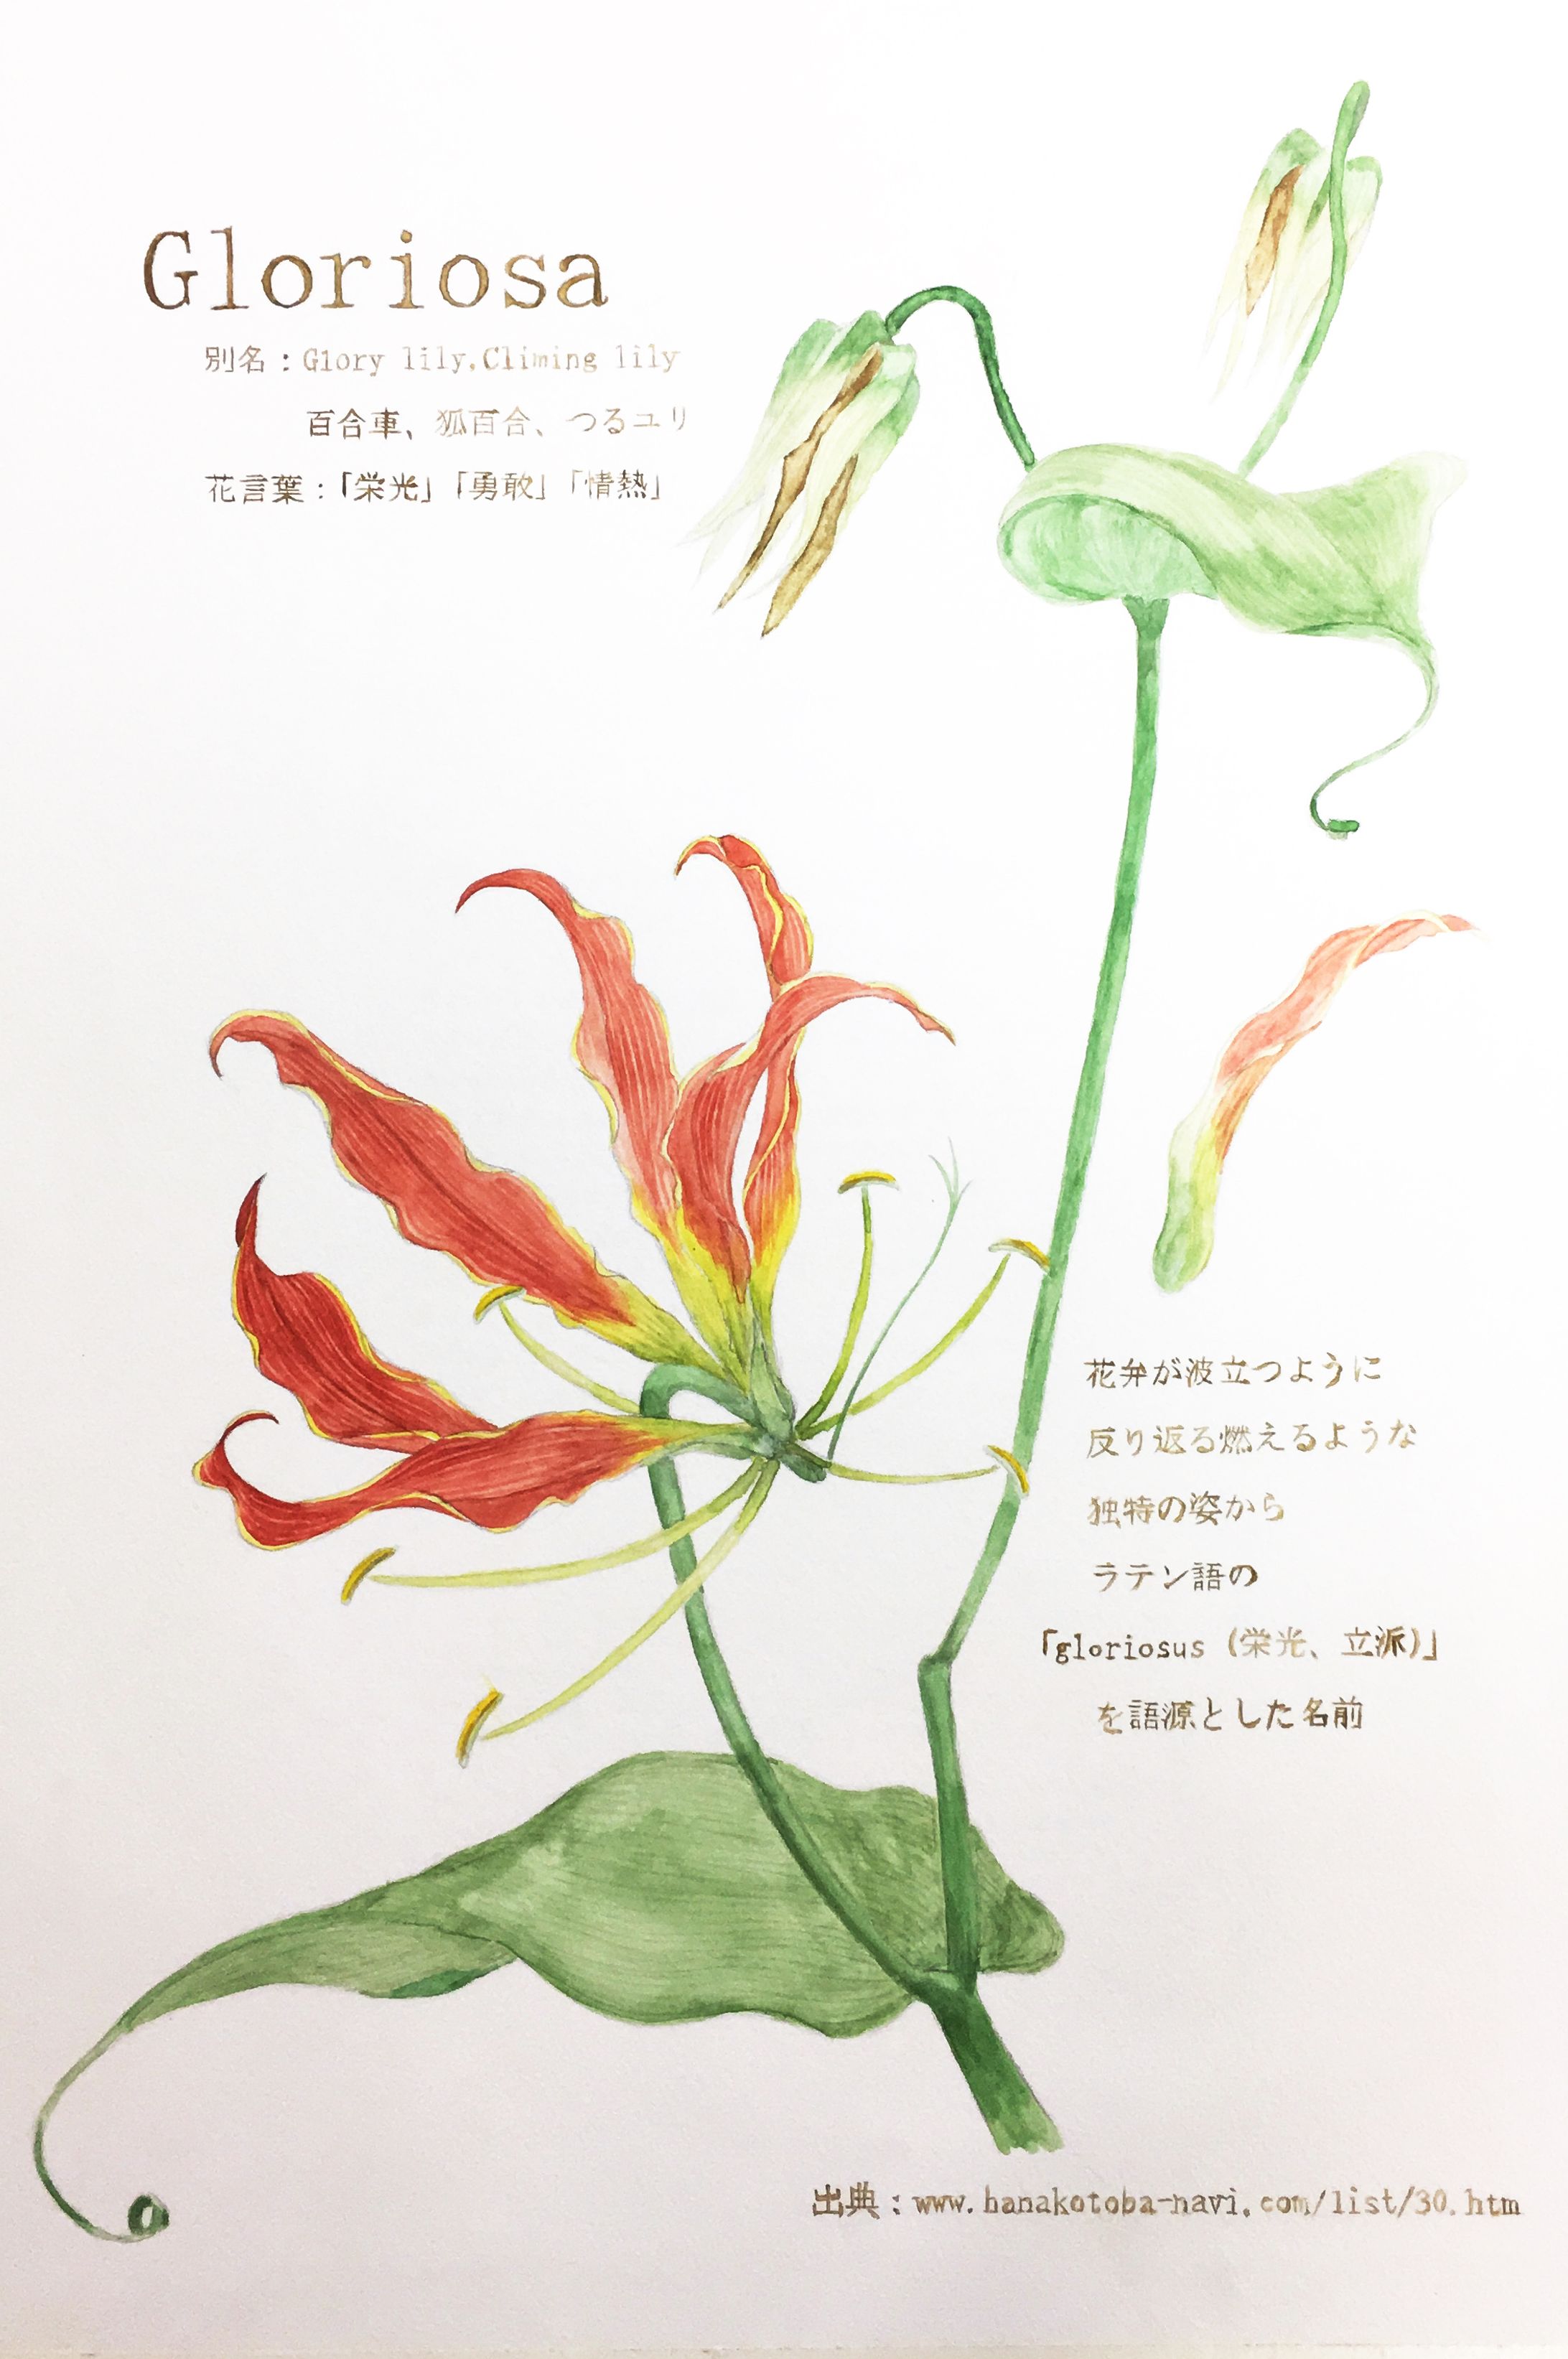 Gloriosa
別名：Glory lily,Climing lily
百合車、狐百合、つるユリ
花言葉：「栄光」「勇敢」「情熱」
花弁が波立つように
反り返る燃えるような
独特の姿から
ラテン語の
「gloriosus (栄光、立派)」
を語源とした名前
出典：www.hanakotoba-navi.com/list/30.htm